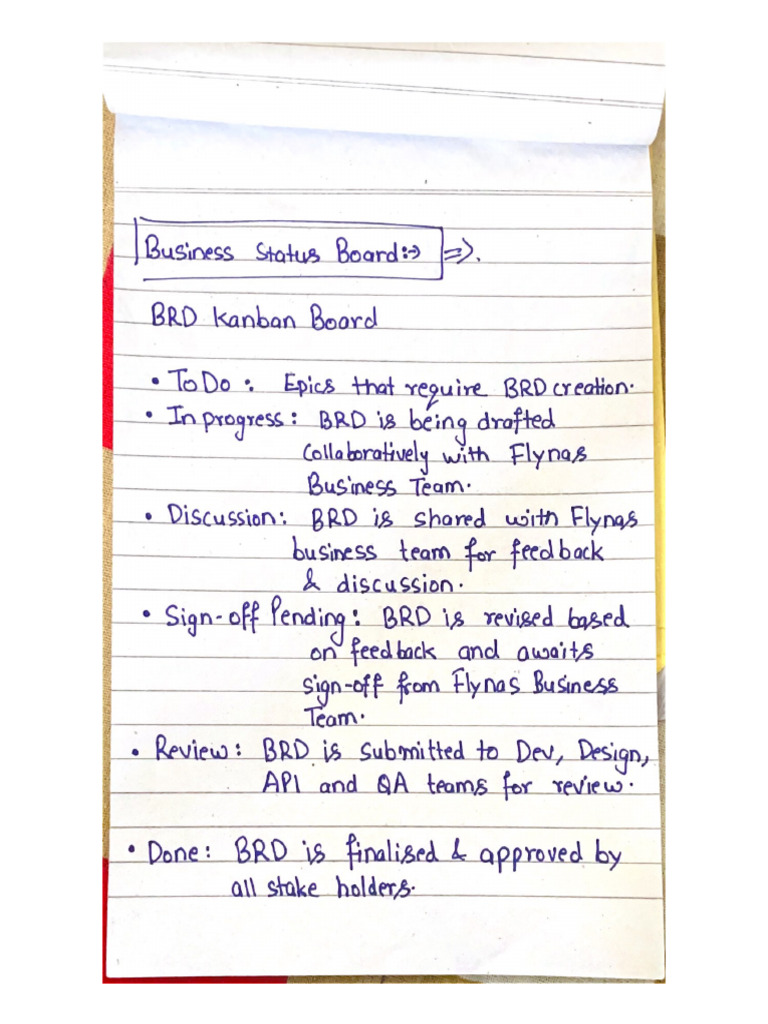 Business Status Board:→ ⇒.
BRD Kanban Board
• To Do : Epics that require BRD creation.
• In progress : BRD is being drafted
collaboratively with Flynas
Business Team.
• Discussion : BRD is shared with Flynas
business team for feedback
& discussion.
• Sign-off Pending : BRD is revised based
on feedback and awaits
sign-off from Flynas Business
Team.
• Review : BRD is submitted to Dev, Design,
API and QA teams for review.
• Done : BRD is finalised & approved by
all stake holders.